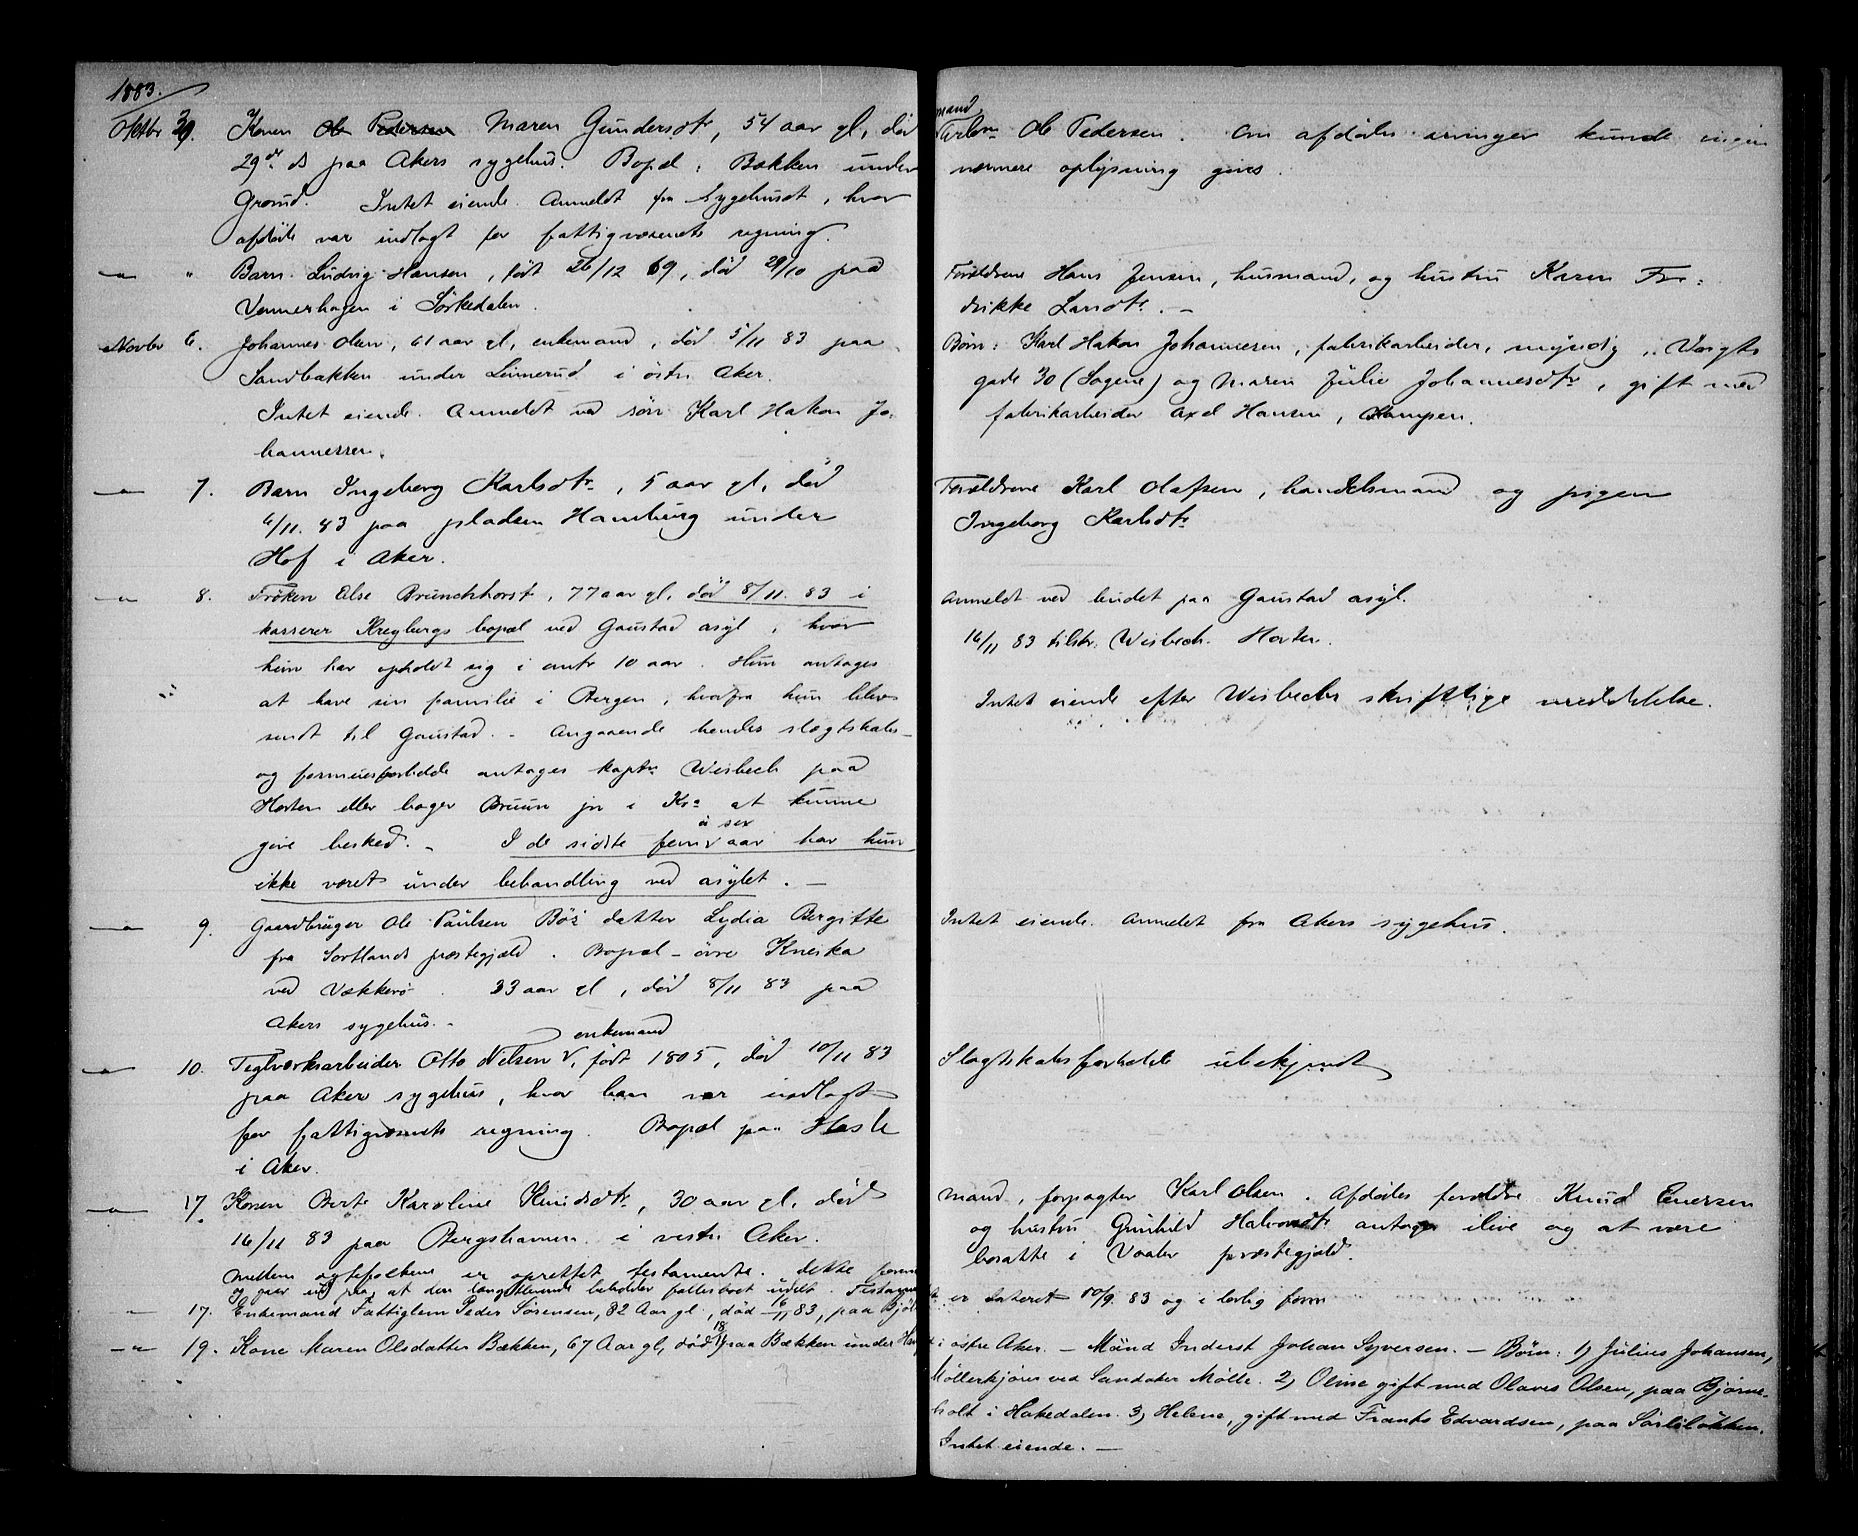 1883.
Oktbr 30. Konen Ole Pedersen Maren Gundersdtr, 54 aar gl, død
29de ds paa Akers sygehus. Bopæl: Bakken under
Grorud. Intet eiende. Anmeldt fra Sygehuset, hvor
afdøde var indlagt for fattigvæsenets regning.
—"— " Barn Ludvig Hansen, født 26/12 69, død 29/10 paa
Vennerhagen i Sørkedalen.
Novbr 6. Johannes Olsen, 61 aar gl, enkemand, død 5/11 83 paa
Sandbakken under Linnerud i østre Aker.
Intet eiende. Anmeldt ved søn Karl Hakon Jo-
hannessen.
—"— 7. Barn Ingeborg Karlsdtr, 5 aar gl, død
6/11. 83 paa pladsen Hamburg under
Hof i Aker.
—"— 8. Frøken Else Brunchhorst, 77 aar gl, død 8/11. 83 i
kasserer Kreybergs bopæl ved Gaustad asyl, hvor
hun har opholdt sig i omtr 10 aar. Hun antages
at have sin familie i Bergen, hvorfra hun blev
sendt til Gaustad. - Angaaende hendes slægtskabs-
og formuesforholde antages kaptn Wisbech paa
Horten eller bager Bruun jr i Kra at kunne
give besked. - I de sidste fem à sex aar har hun
ikke været under behandling ved asylet. —
—"— 9. Gaardbruger Ole Paulsen Bø's datter Lydia Bergitte
fra Sortlands præstegjæld. Bopæl - øvre Kneika
ved Vækkerø. 33 aar gl, død 8/11 83 paa
Akers sygehus. -
enkemand
—"— 10. Teglværksarbeider Otto Nelsen, født 1805, død 10/11 83
paa Aker sygehus, hvor han var indlagt
for fattigvæsenets regning. Bopæl paa Hasle
i Aker.
—"— 17. Konen Berte Karoline Knudsdtr, 30 aar gl, død
16/11 83 paa Bergshavnen i vestre Aker.
Mellem ægtefolkene er oprettet testamente. Dette
og gaar ud paa, at den længstlevende beholder fællesboet udelt.
—"— 17. Enkemand Fattiglem Peder Sørensen, 82 Aar gl, død 16/11 83, paa
—"— 19. Kone Maren Olsdatter Bækken, 67 Aar gl, død 18/11 paa Bækken under
mand
Ole Pedersen. Om afdødes arvinger kunde ingen
nærmere oplysning gives.
Forældrene Hans Jensen, husmand, og hustru Karen Fre-
drikke Larsdtr. —
Børn: Karl Hakon Johannesen, fabrikarbeider, myndig, Voigts
gade 30 (Sagene) og Maren Julie Johannesdtr, gift med
fabrikarbeider Axel Hansen, Kampen.
Forældrene Karl Olafsen, handelsmand og pigen
Ingeborg Karlsdtr
Anmeldt ved budet paa Gaustad asyl.
16/11 83 tilskr. Wisbech. Horten.
Intet eiende efter Wisbechs skriftlige meddelelse.
Intet eiende. Anmeldt fra Akers sygehus.
Slægtskabsforholde ubekjendt
Mand, forpagter Karl Olsen. Afdødes forældre Knud Enersen
og hustru Gunhild Halvorsdtr antages ilive og at være
bosatte i Vaaler præstegjæld.
er dateret 10/9. 83 og i lovlig form
i østre Aker. — Mand Inderst Johan Syversen. — Børn: 1) Julius Johansen,
Møllerkjører ved Sandaker Mølle. 2) Oline gift med Olaves Olsen, paa Bjørne-
holt i Hakedalen. 3) Helene, gift med Frants Edvardsen, paa Sørliløkken.
Intet eiende. —